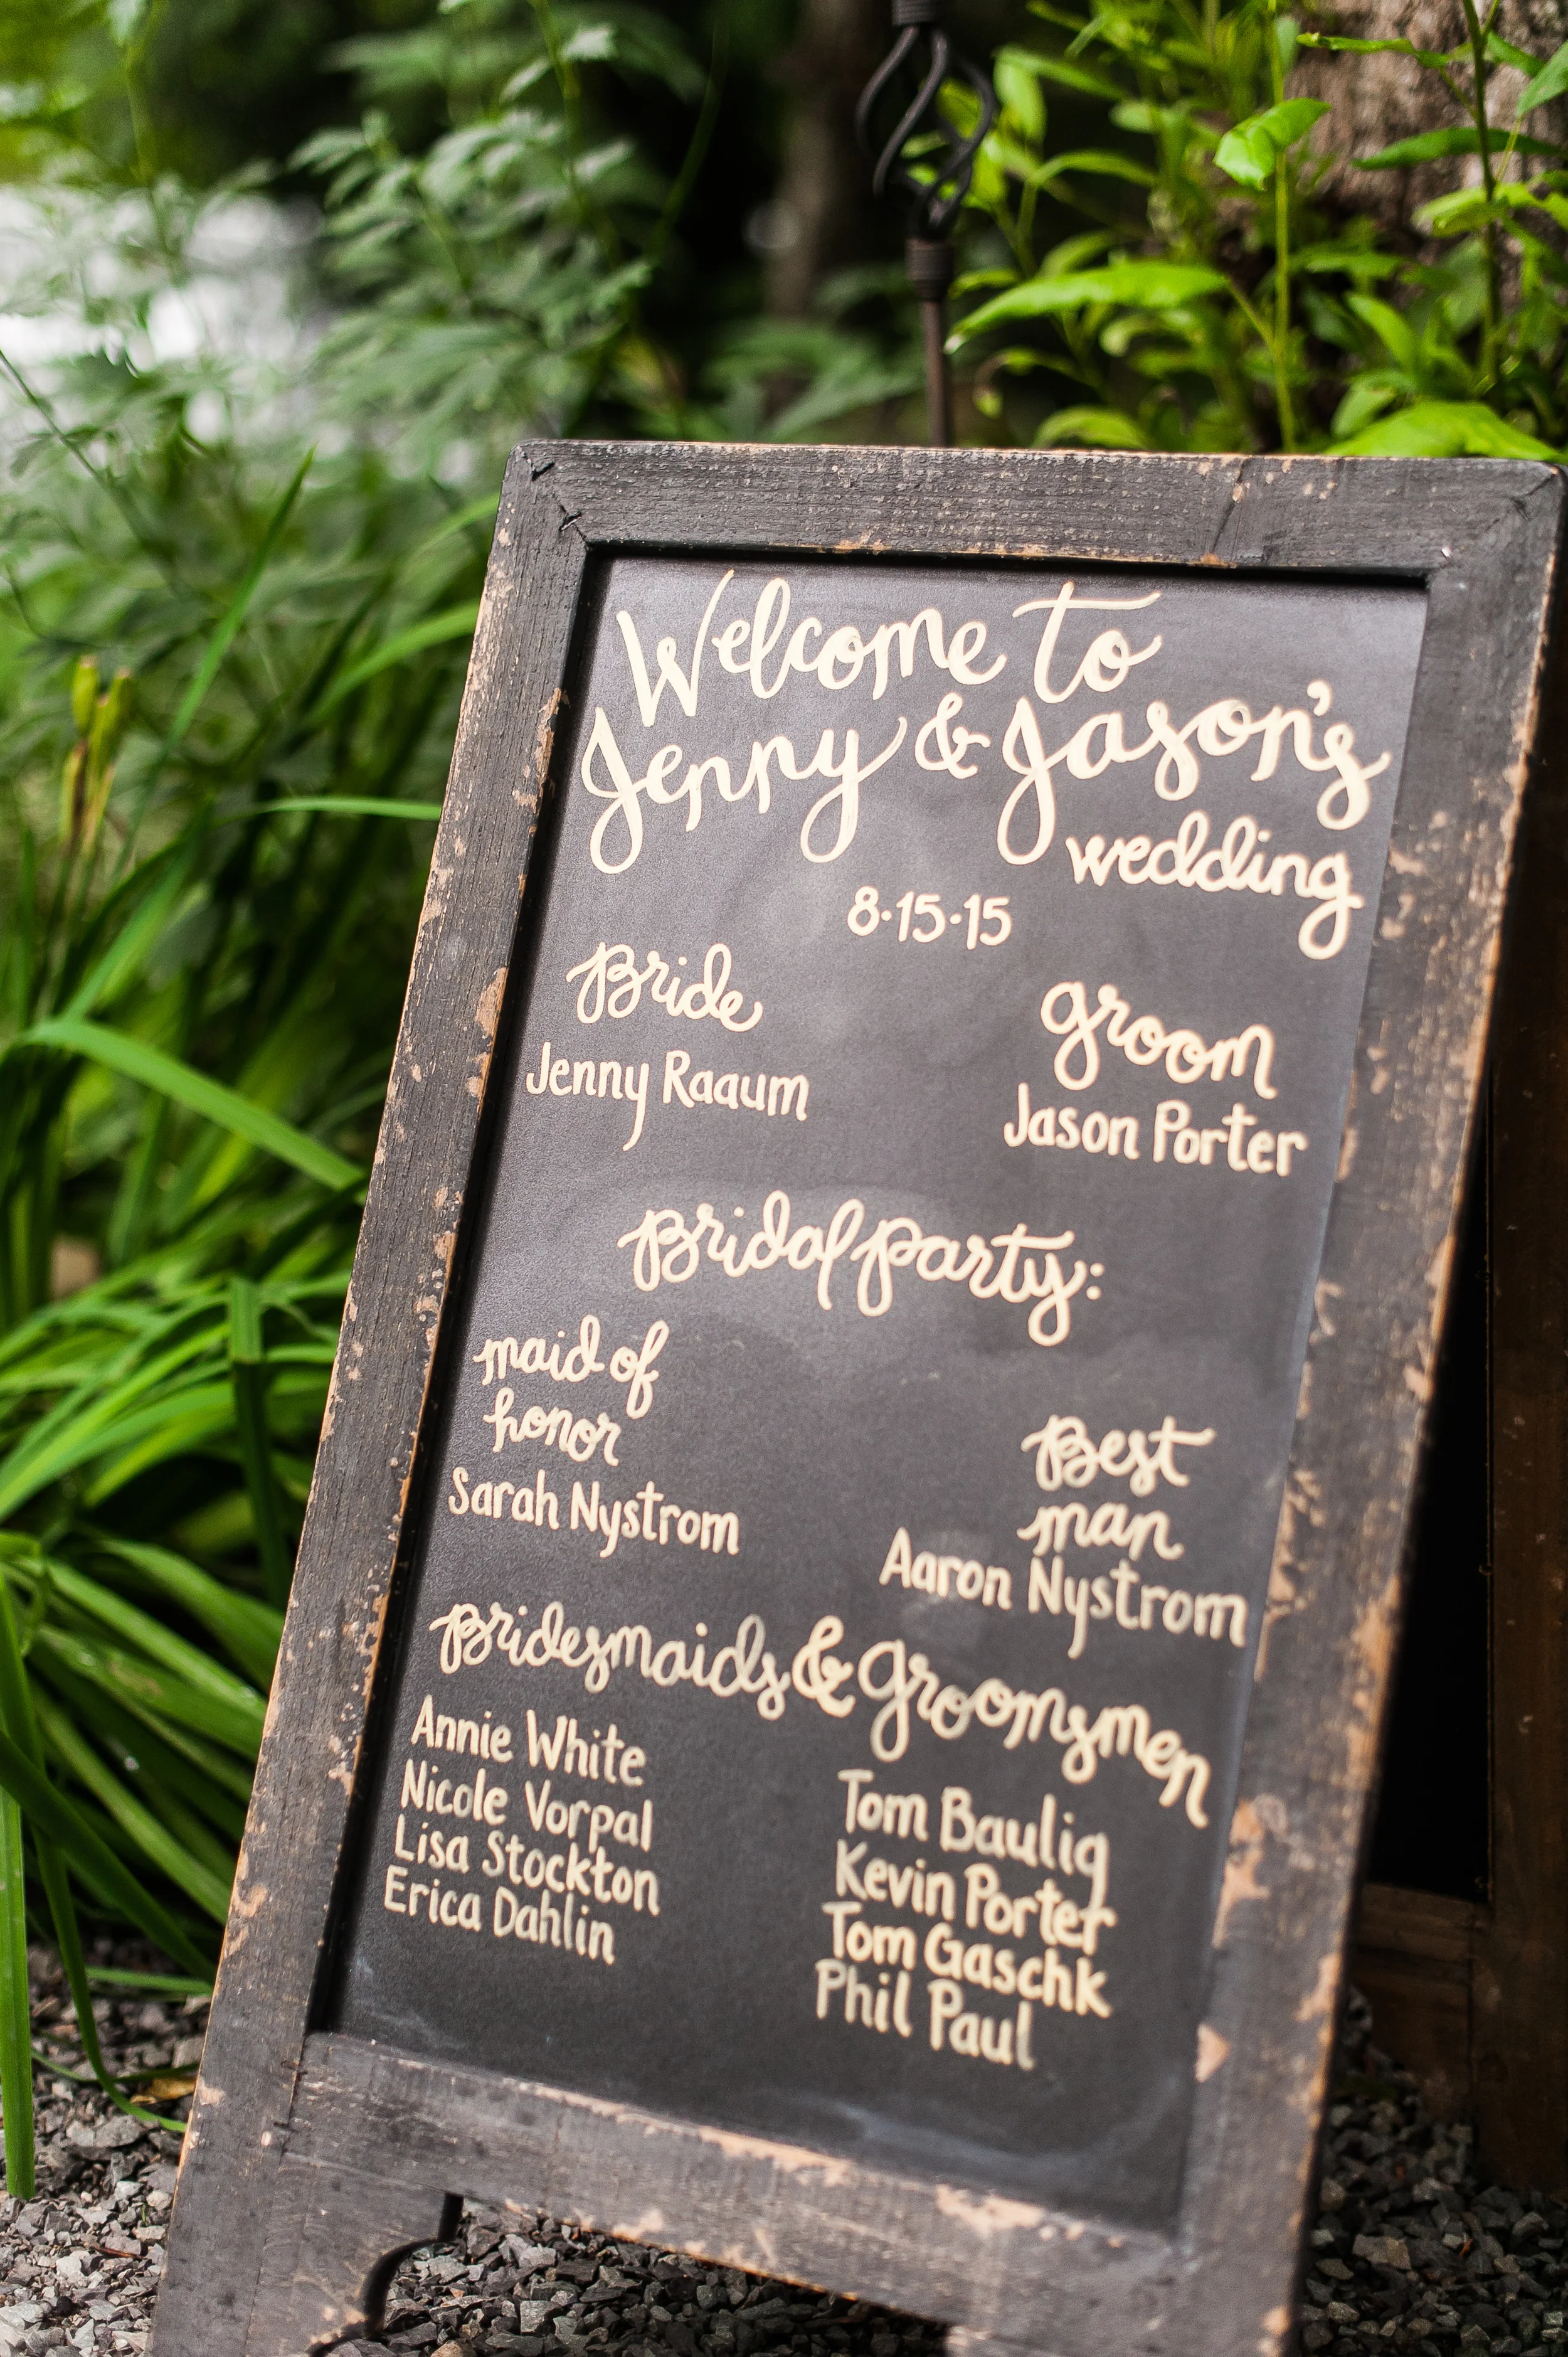 Welcome to
Jenny & Jason's
wedding
8·15·15
Bride
Jenny Raaum
groom
Jason Porter
Bridal party:
maid of
honor
Sarah Nystrom
Best
man
Aaron Nystrom
Bridesmaids & Groomsmen
Annie White
Nicole Vorpal
Lisa Stockton
Erica Dahlin
Tom Baulig
Kevin Porter
Tom Gaschk
Phil Paul